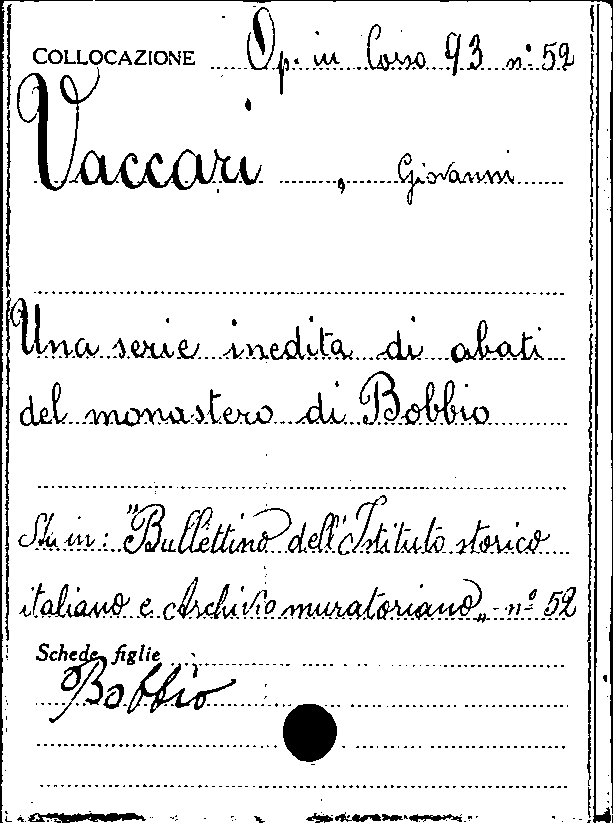 COLLOCAZIONE Op. in Corso 93 n° 52
Vaccari , Giovanni
Una serie inedita di abati
del monastero di Bobbio
Sta in: "Bullettino dell'Istituto storico
italiano e Archivio muratoriano„ - n° 52
Schede figlie
Bobbio